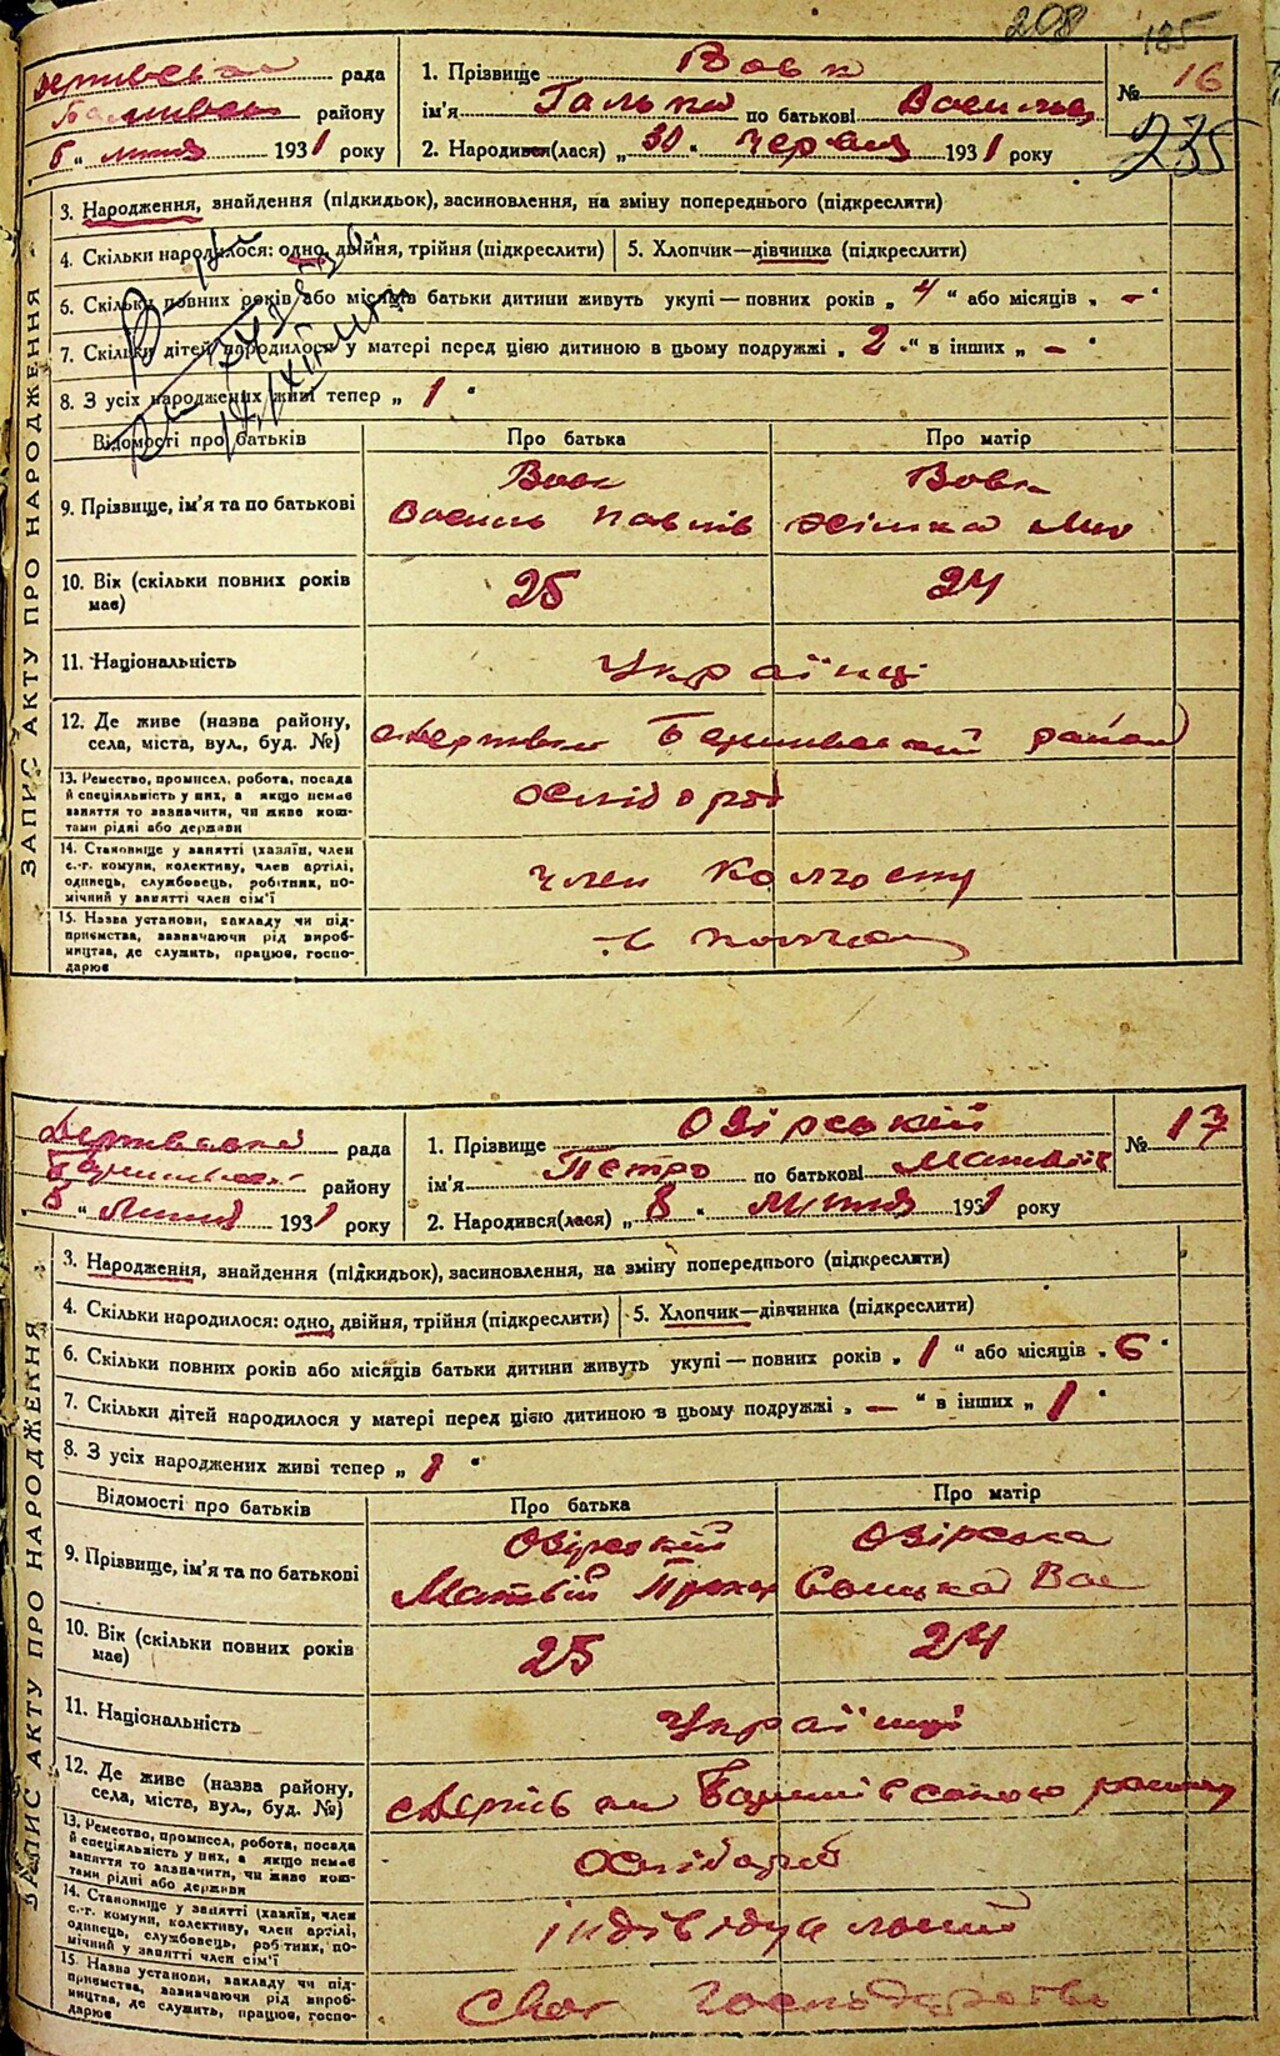 208 185
рада
району
6 " липня 1931 року
1. Прізвище Вовк
ім'я Галька по батькові
2. Народився(лася) „ 30 " червня 1931 року
№ 16
235
ЗАПИС АКТУ ПРО НАРОДЖЕННЯ
3. Народження, знайдення (підкидьок), засиновлення, на зміну попереднього (підкреслити)
4. Скільки народилося: одно, двійня, трійня (підкреслити) 5. Хлопчик—дівчинка (підкреслити)
6. Скільки повних років або місяців батьки дитини живуть укупі — повних років „ 4 " або місяців „ — "
7. Скільки дітей народилося у матері перед цією дитиною в цьому подружжі „ 2 " в інших „ — "
8. З усіх народжених живі тепер „ 1 "
Відомості про батьків Про батька Про матір
9. Прізвище, ім'я та по батькові Вовк Вовк
Василь Павлів
10. Вік (скільки повних років
має) 25 24
11. Національність Українці
12. Де живе (назва району,
села, міста, вул., буд. №)
13. Ремество, промисел, робота, посада
й спеціяльність у них, а якщо немає
заняття то зазначити, чи живе кош-
тами рідні або держави
хлібороб
14. Становище у занятті (хазяїн, член
с.-г. комуни, колективу, член артілі,
одинець, службовець, робітник, по-
мічний у занятті член сім'ї
член колгоспу
15. Назва установи, закладу чи під-
приємства, зазначаючи рід вироб-
ництва, де служить, працює, госпо-
дарює
рада
району
8 " липня 1931 року
1. Прізвище Озірський
ім'я Петро по батькові Матвіїв
2. Народився(лася) „ 8 " липня 1931 року
№ 17
ЗАПИС АКТУ ПРО НАРОДЖЕННЯ
3. Народження, знайдення (підкидьок), засиновлення, на зміну попереднього (підкреслити)
4. Скільки народилося: одно, двійня, трійня (підкреслити) 5. Хлопчик—дівчинка (підкреслити)
6. Скільки повних років або місяців батьки дитини живуть укупі — повних років „ 1 " або місяців „ 6 "
7. Скільки дітей народилося у матері перед цією дитиною в цьому подружжі „ — " в інших „ 1 "
8. З усіх народжених живі тепер „ 1 "
Відомості про батьків Про батька Про матір
9. Прізвище, ім'я та по батькові Озірский Озірська
Матвій Прохор Вас
10. Вік (скільки повних років
має) 25 24
11. Національність Українці
12. Де живе (назва району,
села, міста, вул., буд. №)
13. Ремество, промисел, робота, посада
й спеціяльність у них, а якщо немає
заняття то зазначити, чи живе кош-
тами рідні або держави
хлібороб
14. Становище у занятті (хазяїн, член
с.-г. комуни, колективу, член артілі,
одинець, службовець, робітник, по-
мічний у занятті член сім'ї
15. Назва установи, закладу чи під-
приємства, зазначаючи рід вироб-
ництва, де служить, працює, госпо-
дарює